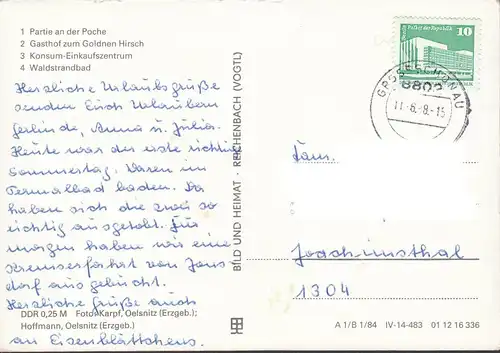 1 Partie an der Poche
2 Gasthof zum Goldnen Hirsch
3 Konsum-Einkaufszentrum
4 Waldstrandbad
Herzliche Urlaubsgrüße
senden Euch Urlaubern
Gerlinde, Anna u. Julia.
Heute war der erste richtige
Sommertag. Waren im
Termalbad baden. Da
haben sich die zwei so
richtig ausgetobt. Für
morgen haben wir eine
Kremserfahrt von Jons
dorf ausgebucht.
Herzliche Grüße auch
an Eisenblättchens.
DDR 0,25 M Foto: Karpf, Oelsnitz (Erzgeb.);
Hoffmann, Oelsnitz (Erzgeb.)
BILD UND HEIMAT · REICHENBACH (VOGTL)
Palast der Republik
10
GROSSSCHÖNAU
8802
Fam.
Joachimsthal
1304
A 1/B 1/84 IV-14-483 01 12 16 336